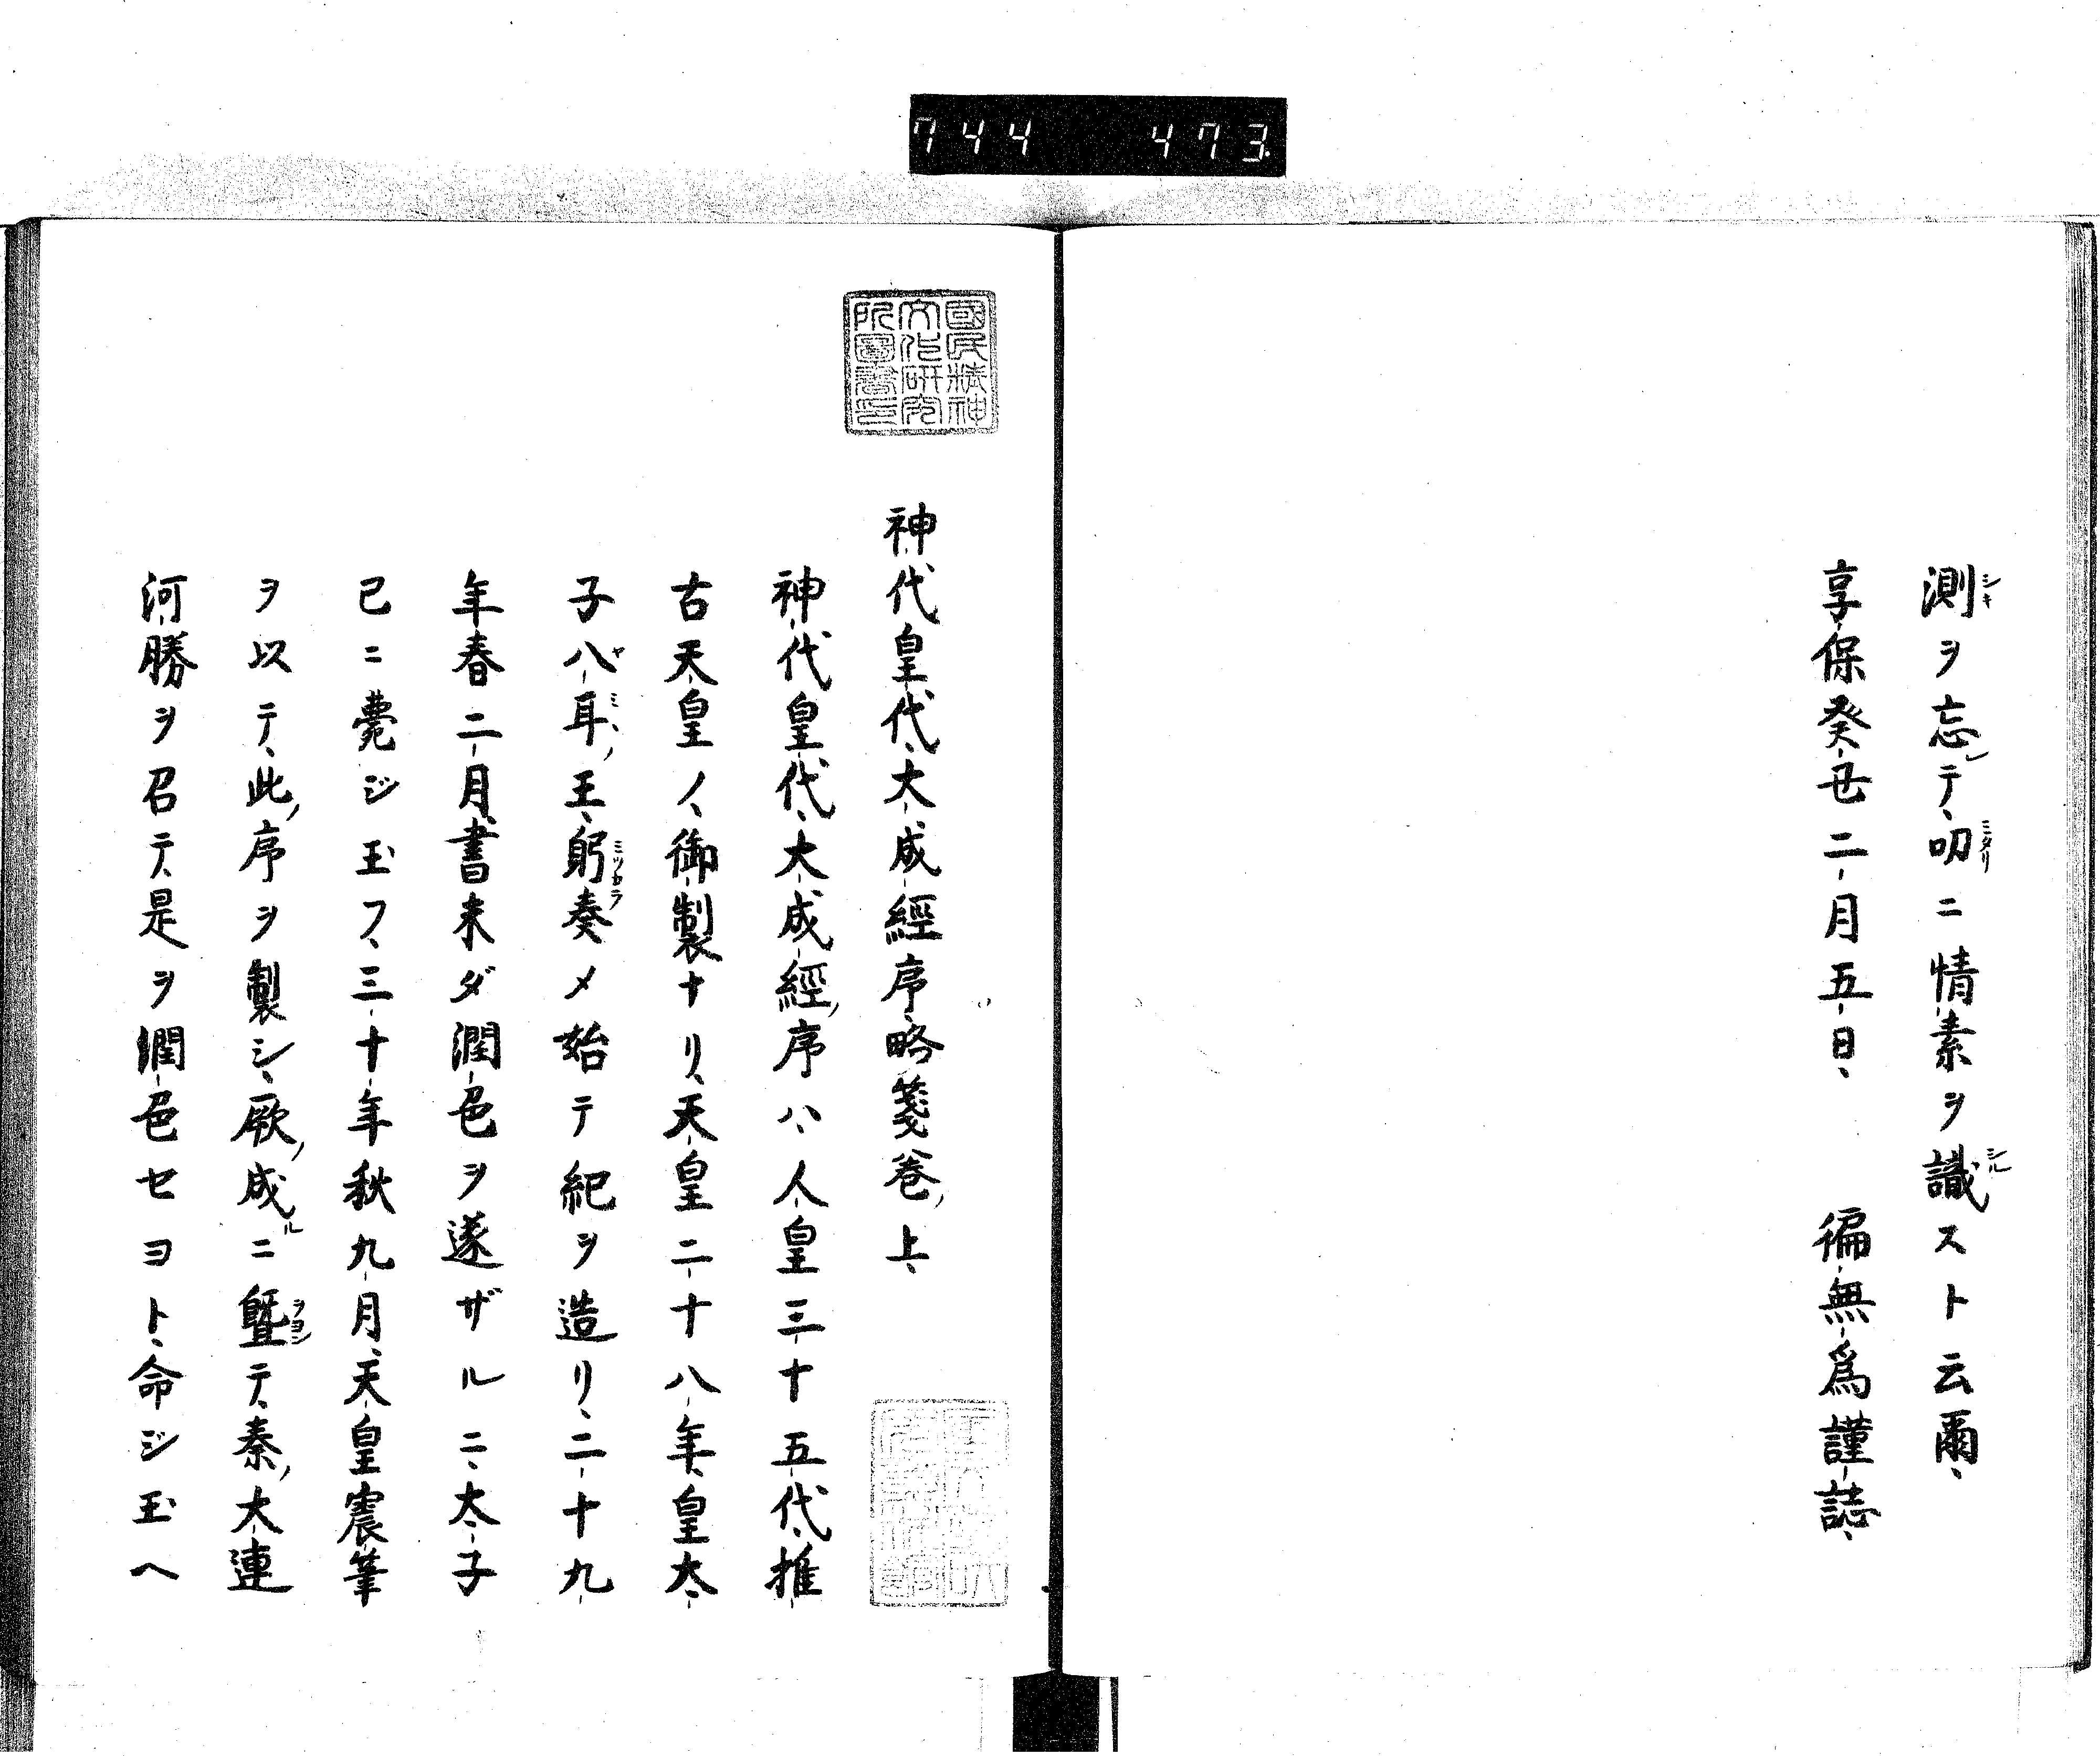 744 473
測ヲ忘テ、叨ニ情素ヲ識ストト云爾、
享保癸丑二月五日、 徧無爲謹誌、
國民精神
文化研究
所圖書印
神代皇代大成經序略箋卷上、
神代皇代大成經序ハ、人皇三十五代推
古天皇ノ御製ナリ、天皇二十八年、皇太
子八耳王、躬奏メ始テ紀ヲ造リ、二十九
年春二月、書未ダ潤色ヲ遂ザルニ、太子
已ニ薨ジ玉フ、三十年秋九月、天皇宸筆
ヲ以テ、此序ヲ製シ、厥成ルニ曁テ、秦大連
河勝ヲ召テ、是ヲ潤色セヨト、命ジ玉ヘ